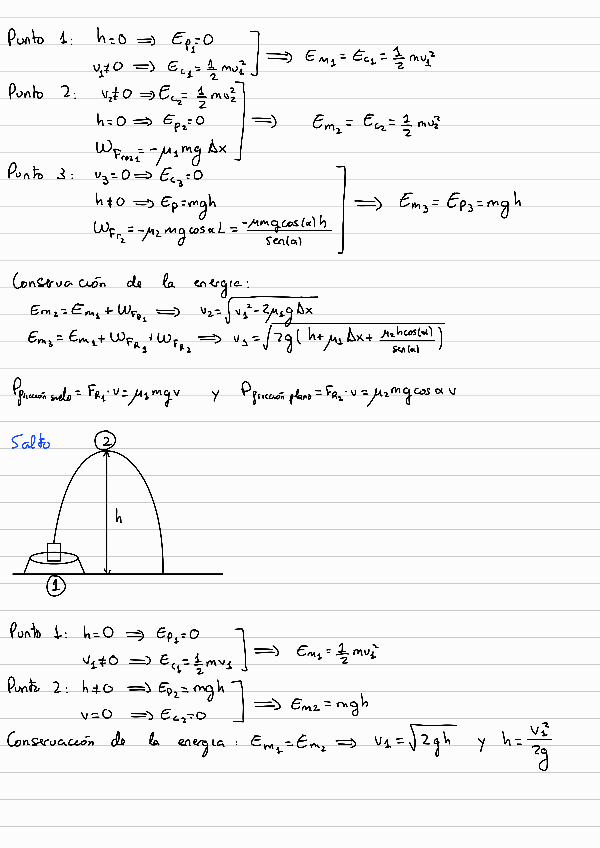 Punto 1: h=0 ⇒ Ep₁=0
v₁≠0 ⇒ Ec₁=½mv₁² ⇒ Em₁=Ec₁=½mv₁²
Punto 2: v₂≠0 ⇒ Ec₂=½mv₂²
h=0 ⇒ Ep₂=0 ⇒ Em₂=Ec₂=½mv₂²
W_Froz₁=-μ₁mgΔx
Punto 3: v₃=0 ⇒ Ec₃=0
h≠0 ⇒ Ep=mgh ⇒ Em₃=Ep₃=mgh
W_Fr₂=-μ₂mgcosαL=-μmgcos(α)h/sen(α)
Conservación de la energía:
Em₂=Em₁+W_FR₁ ⇒ v₂=√(v₁²-2μ₁gΔx)
Em₃=Em₁+W_FR₁+W_FR₂ ⇒ v₁=√(2g(h+μ₁Δx+μ₂hcos(α)/sen(α)))
P fricción suelo=F_R₁·v=μ₁mgv y P fricción plano=F_R₂·v=μ₂mgcosαv
Salto
2
h
1
Punto 1: h=0 ⇒ Ep₁=0
v₁≠0 ⇒ Ec₁=½mv₁ ⇒ Em₁=½mv₁²
Punto 2: h≠0 ⇒ Ep₂=mgh
v=0 ⇒ Ec₂=0 ⇒ Em₂=mgh
Conservación de la energía: Em₁=Em₂ ⇒ v₁=√2gh y h=v₁²/2g